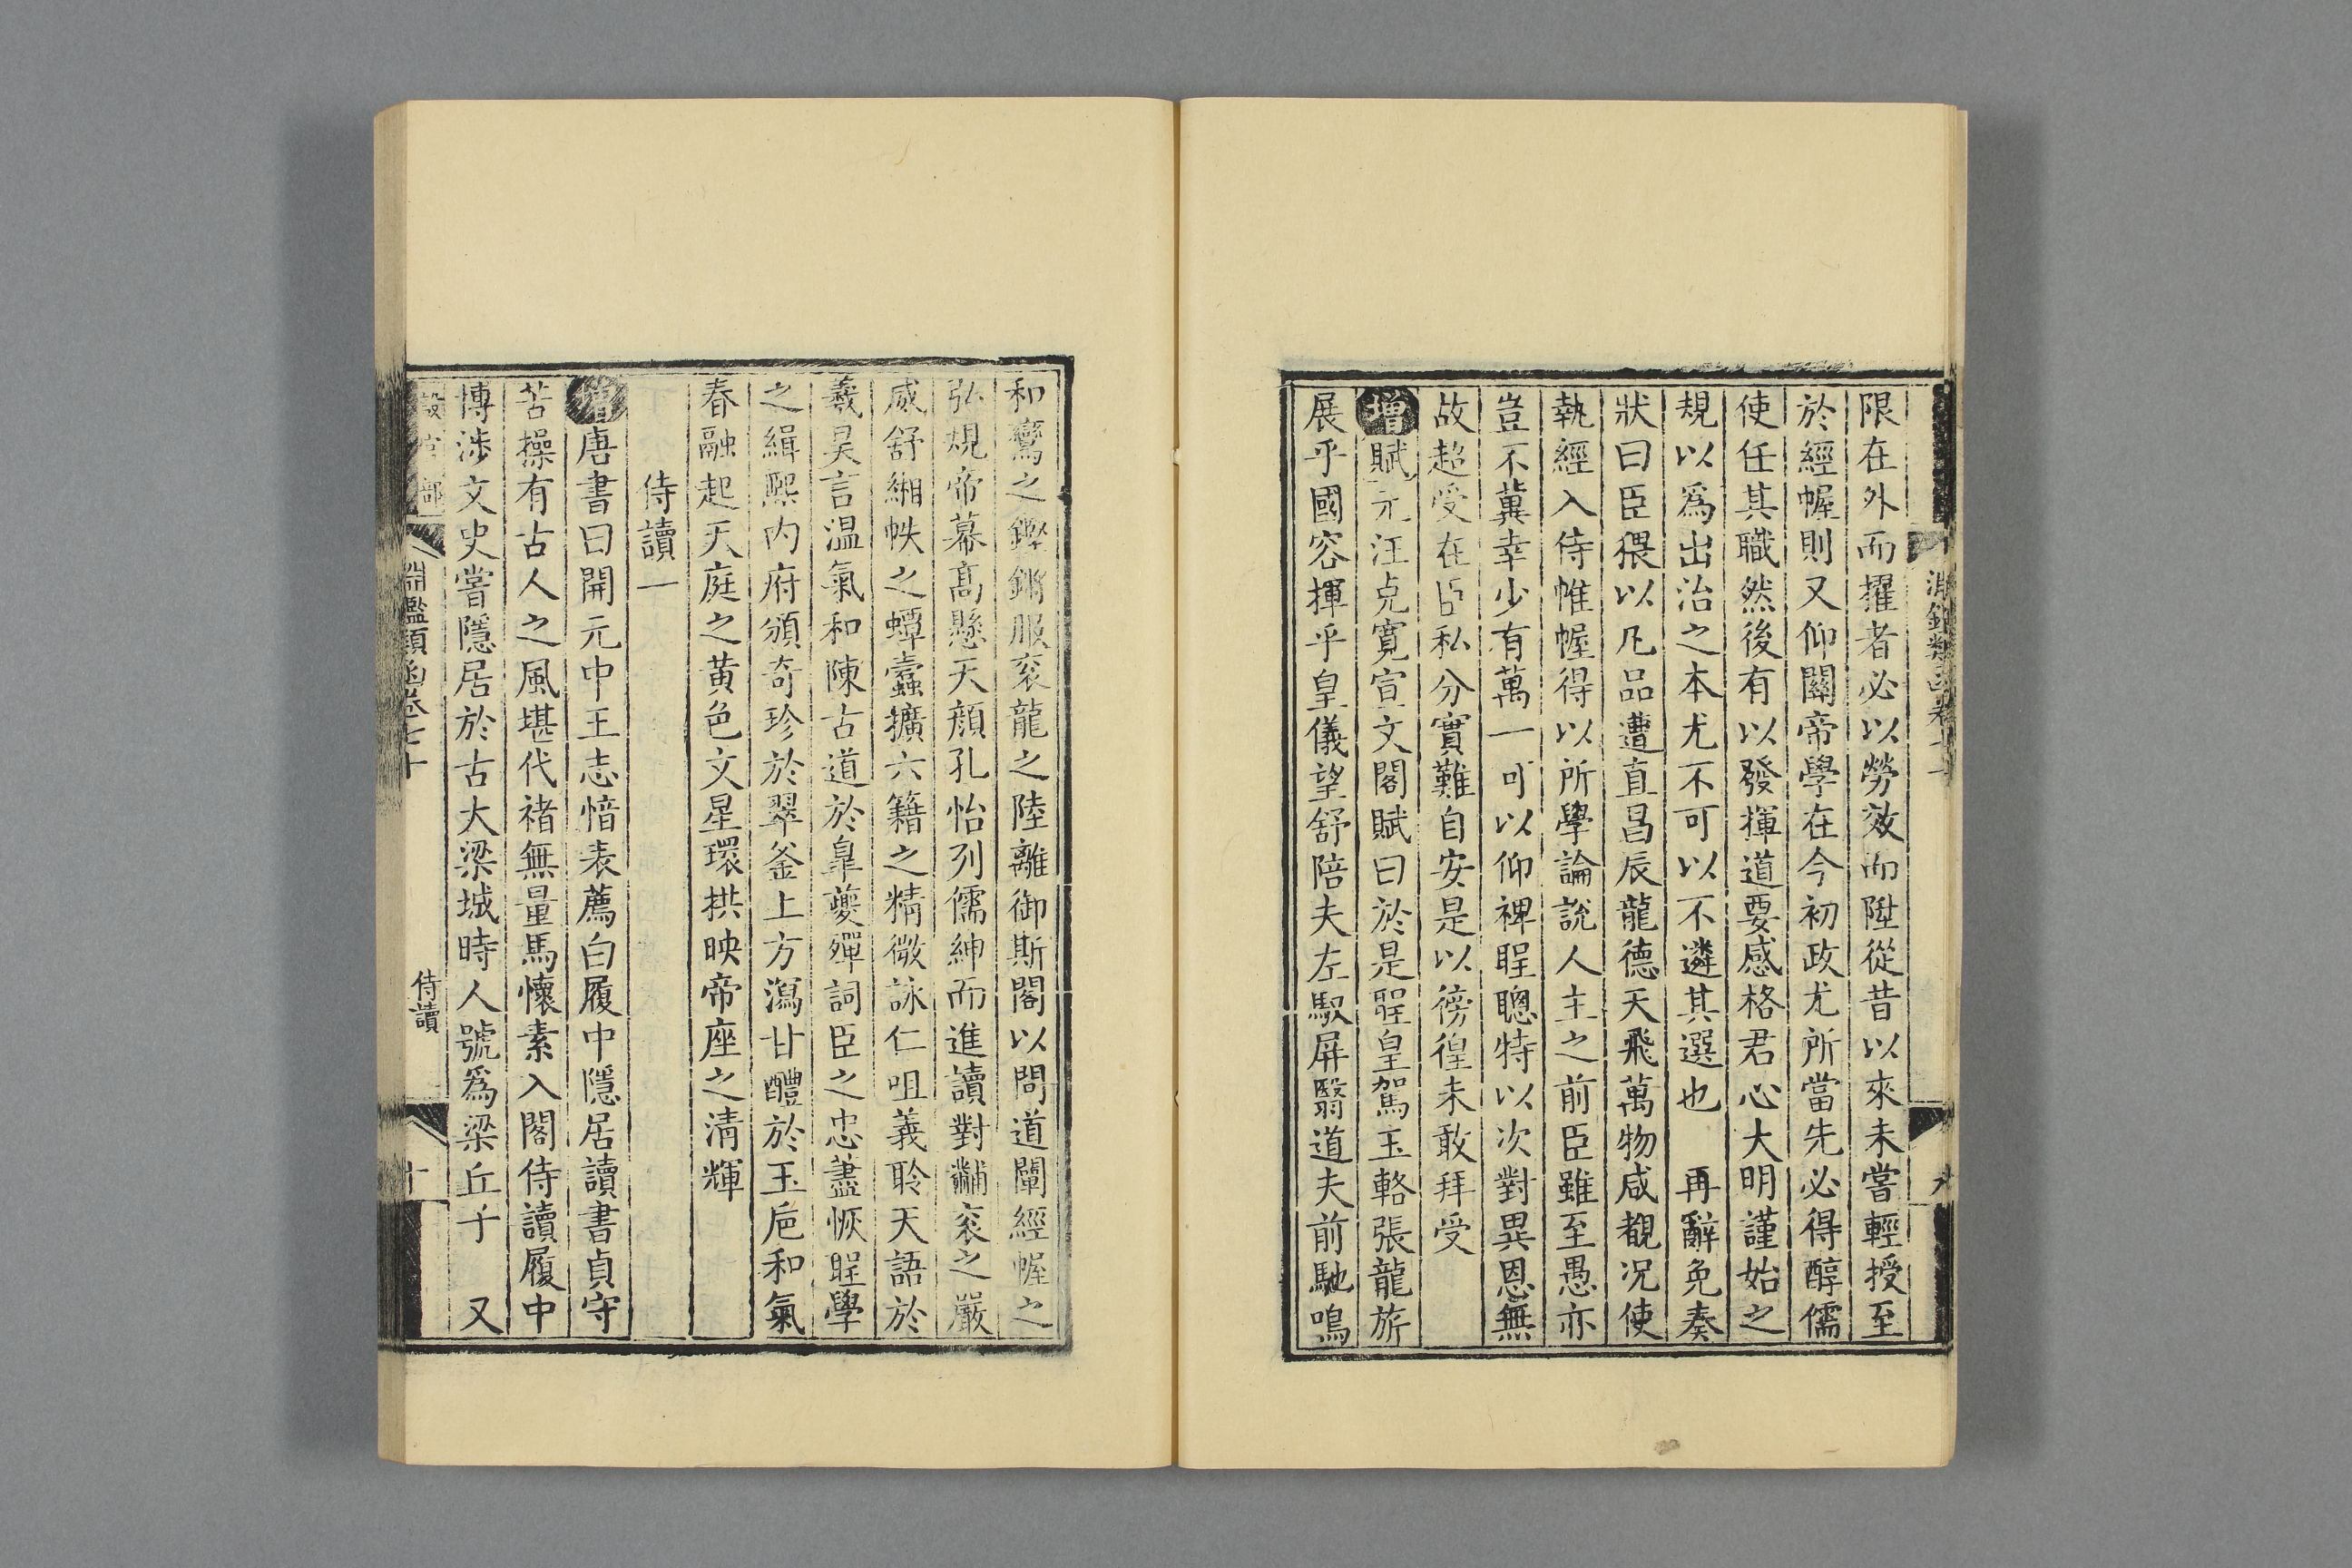 限在外而擢者必以勞效而陞從昔以來未嘗輕授至
於經幄則又仰關帝學在今初政尤所當先必得醇儒
使任其職然後有以發揮道要感格君心大明謹始之
規以爲出治之本尤不可以不遴其選也　再辭免奏
狀曰臣猥以凡品遭直昌辰龍德天飛萬物咸覩况使
執經入侍帷幄得以所學論說人主之前臣雖至愚亦
豈不冀幸少有萬一可以仰裨聖聰特以次對異恩無
故超受在臣私分實難自安是以徬徨未敢拜受
增賦元汪克寬宣文閣賦曰於是聖皇駕玉輅張龍旂
展乎國容揮乎皇儀望舒陪夫左馭屏翳道夫前馳鳴
和鸞之鏗鏘服衮龍之陸離御斯閣以問道闡經幄之
弘規帝幕髙懸天顔孔怡列儒紳而進讀對黼衮之嚴
威舒緗帙之蟫蠹擴六籍之精微詠仁咀義聆天語於
羲昊言温氣和陳古道於臯夔殫詞臣之忠藎恢聖學
之緝熙内府頒奇珍於翠釜上方瀉甘醴於玉巵和氣
春融起天庭之黄色文星環拱映帝座之清輝
侍讀一
增唐書曰開元中王志愔表薦白履中隱居讀書貞守
苦操有古人之風堪代褚無量馬懷素入閣侍讀履中
博涉文史嘗隱居於古大梁城時人號爲梁丘子　又
淵鑑類函卷七十
侍讀
十